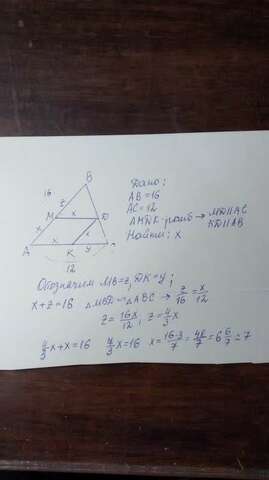 B
16
z
M
x
D
x
x
A
x
K
y
12
Дано:
AB=16
AC=12
AMDK-ромб → MD||AC
KD||AB
Найти: x
Обозначим MB=z, DK=y;
x+z=16 △MBD~△ABC → z/16 = x/12
z=16x/12; z=4/3x
4/3x+x=16 7/3x=16 x=16·3/7=48/7=6 6/7≈7